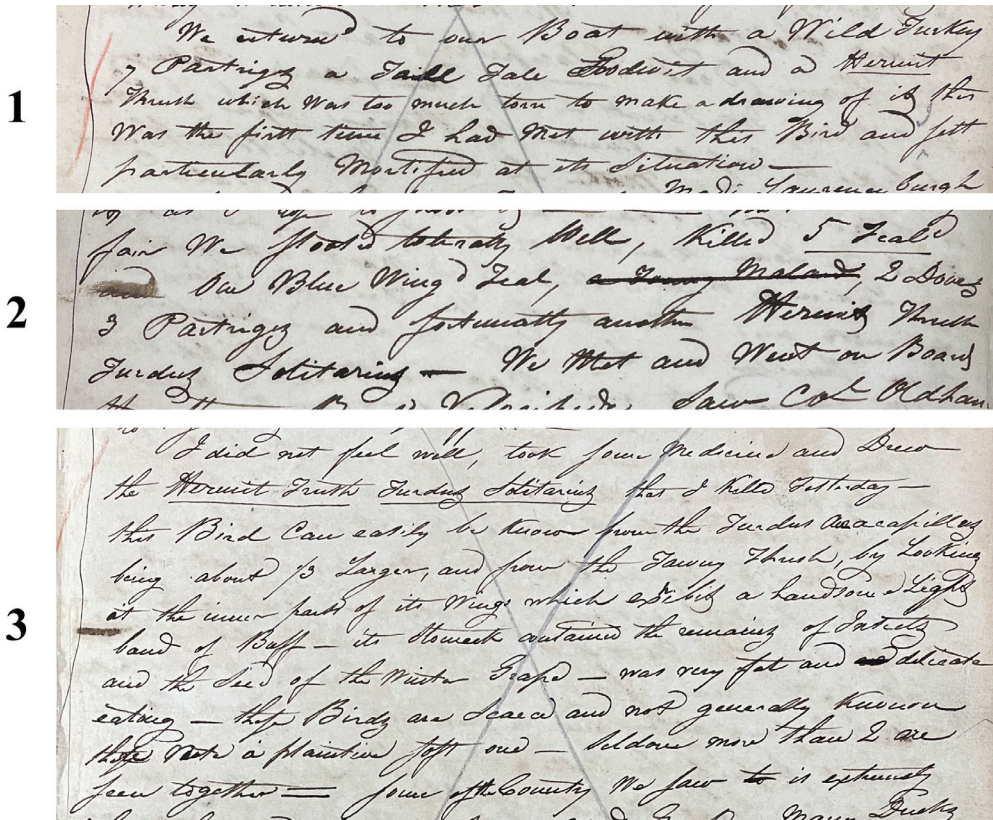 1
We returnd to our Boat with a Wild Turkey
7 Partrigs a Taill Tale Godwit and a Hermit
Thrush which was too much torn to make a drawing of it this
Was the first time I had Met with this Bird and felt
particularly Mortified at its Situation—
2
fair We Shoot'd tolerably Well, Killed 5 Teals
One Blue Wing'd Teal, a Young Malard, 2 Doves
3 Partrigs and fortunatly another Hermit Thrush
Turdus Solitarius — We Met and Went on Board
Saw Col Oldham
3
I did not feel well, took some Medicine and Drew
the Hermit Trush Turdus Solitarius that I Killed Yesterday —
this Bird Can easily be Known from the Turdus Auracapillus
being about 1/3 Larger, and from the Tawny Thrush, by Looking
at the inner parts of its Wings which exibits a handsome Light
band of Buff — its Stomach contained the remains of Insects
and the Seed of the Winter Grape — was very fat and and delicate
eating — these Birds are Scarce and not generally Known
these Note a plaintive soft one — Seldom more than 2 are
seen together — some of the Country We saw to is extremely
Many Ducks